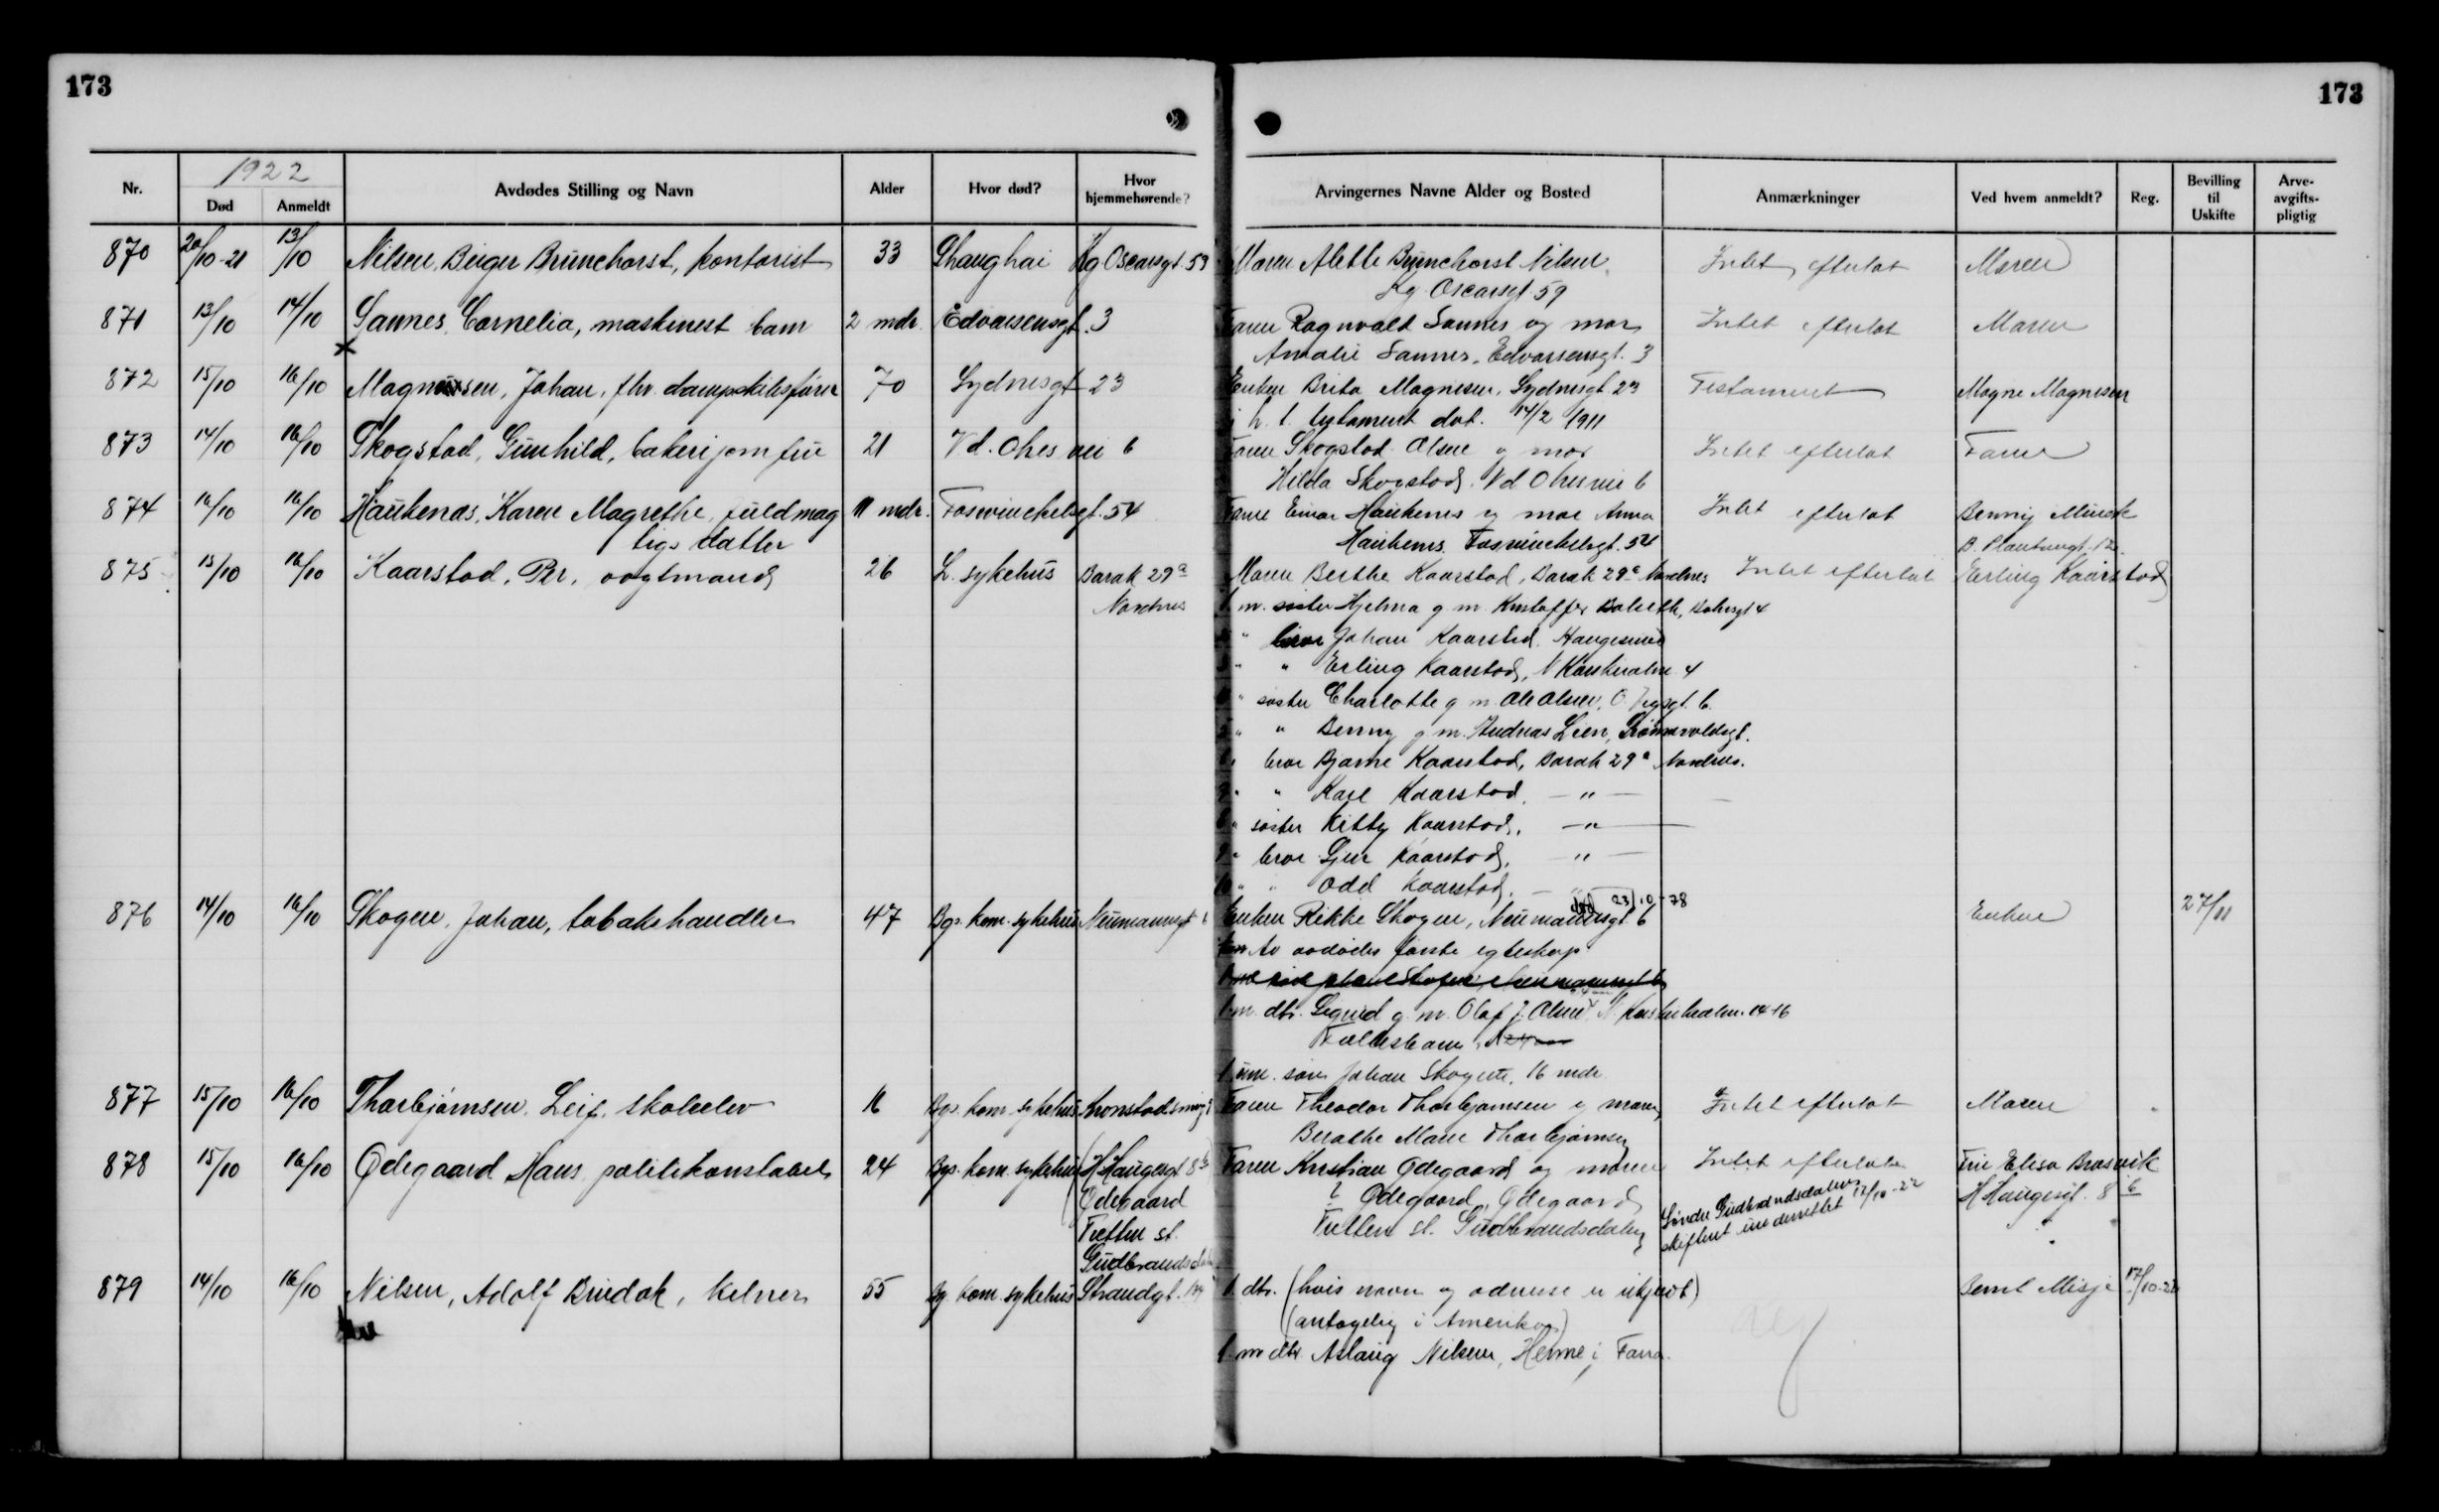 173
173
1922
Nr.
Død
Anmeldt
Avdødes Stilling og Navn
Alder
Hvor død?
Hvor hjemmehørende?
Arvingernes Navne Alder og Bosted
Anmærkninger
Ved hvem anmeldt?
Reg.
Bevilling til Uskifte
Arve-avgifts-pligtig
870 20/10-21 13/10 Nilsen, Birger Brunchorst, kontorist 33 Shanghai Kg Oscarsgt 59 Moren Alette Brunchorst Nilsen, Intet efterlat Moren
Kg. Oscarsgt. 59
871 13/10 14/10 Sannes, Cornelia, maskinist barn 2 mdr. Edvarsensgt. 3 Faren Ragnvald Sannes og mor Intet efterlat Moren
Amalie Sannes, Edvarsensgt. 3
872 15/10 16/10 Magnussen, Johan, fhv. dampskibsfører 70 Sydnesgt 23 Enken Brita Magnesen, Sydnesgt 23 Testament Magne Magnesen
i h. t. testament dat. 14/2 1911
873 14/10 16/10 Skogstad, Gunhild, bakerijomfru 21 Vd. Ohes vei 6 Faren Skogstad Olsen og mor Intet efterlat Faren
Hilda Skogstad, Vd Ohesvei 6
874 16/10 16/10 Haukenæs, Karen Magrethe, fuldmæg 11 mdr. Foswinckelsgt. 54 Faren Einar Haukenes og mor Anna Intet efterlat Benny Munck
tigs datter Haukenes, Foswinckelsgt. 54 B. Plantengt. 12
875 13/10 16/10 Kaarstad, Per, vogtmand 26 L. sykehus Barak 29a Moren Berthe Kaarstad, Barak 29a Nordnes Intet efterlat Erling Kaarstad
Nordnes 1 m. søster Hjelma g m. Kristoffer
bror Johan Kaarstad, Haugesund
3 " " Erling Kaarstad, N Korskirkealm. 4
4 " søster Charlotte g m. Ole Olsen,
5 " " Benny g m. Andreas Lien,
6 " bror Bjarne Kaarstad, Barak 29a Nordnes.
7 " " Karl Kaarstad, — " —
8 " søster Kitty Kaarstad, — " —
9 " bror Kaarstad, — " —
10 " " Odd Kaarstad, — " —
død 23/10-78
876 14/10 16/10 Skogen, Johan, tobakshandler 47 Bgs. kom. sykehus Neumannsgt 6 Enken Rikke Skogen, Neumannsgt. 6 Enken 27/11
Av avdødes første egteskap
1 m. dtr. Sigrid g. m. Olaf J. Olsen, N. Korskirkealm. 14-16
Fællesbarn
1 um. søn Johan Skogen, 16 mdr.
877 15/10 16/10 Thorbjørnsen, Leif, skoleelev 16 Bgs. kom. sykehus Kronstadsmug Faren Theodor Thorbjørnsen og moren, Intet efterlat Moren
Berathe Marie Thorbjørnsen
878 15/10 16/10 Ødegaard Hans politikonstabel 24 Bgs. kom. sykehus (H Haugesgt 8b) Faren Kristian Ødegaard og moren Intet efterlat Fru Elisa Brasvik
Ødegaard ? Ødegaard, Ødegaard H Haugesgt. 8 b
Tretten st. Tretten st. Gudbrandsdalen Søndre Gudbrandsdalens 17/10-22
Gudbrandsdalen skifteret underrettet
879 14/10 16/10 Nilsen, Adolf Brudok, kelner 55 Bg. kom. sykehus Strandgt. 1. dtr. (hvis navn og adresse er ukjent) Bernt Misje 17/10-22
(antagelig i Amerika)
1. m dtr Aslaug Nilsen, Herme i Fana.